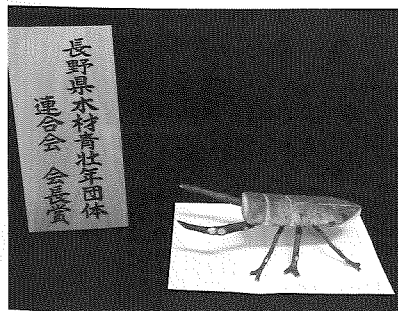 長野県木材青壮年団体
連合会　会長賞